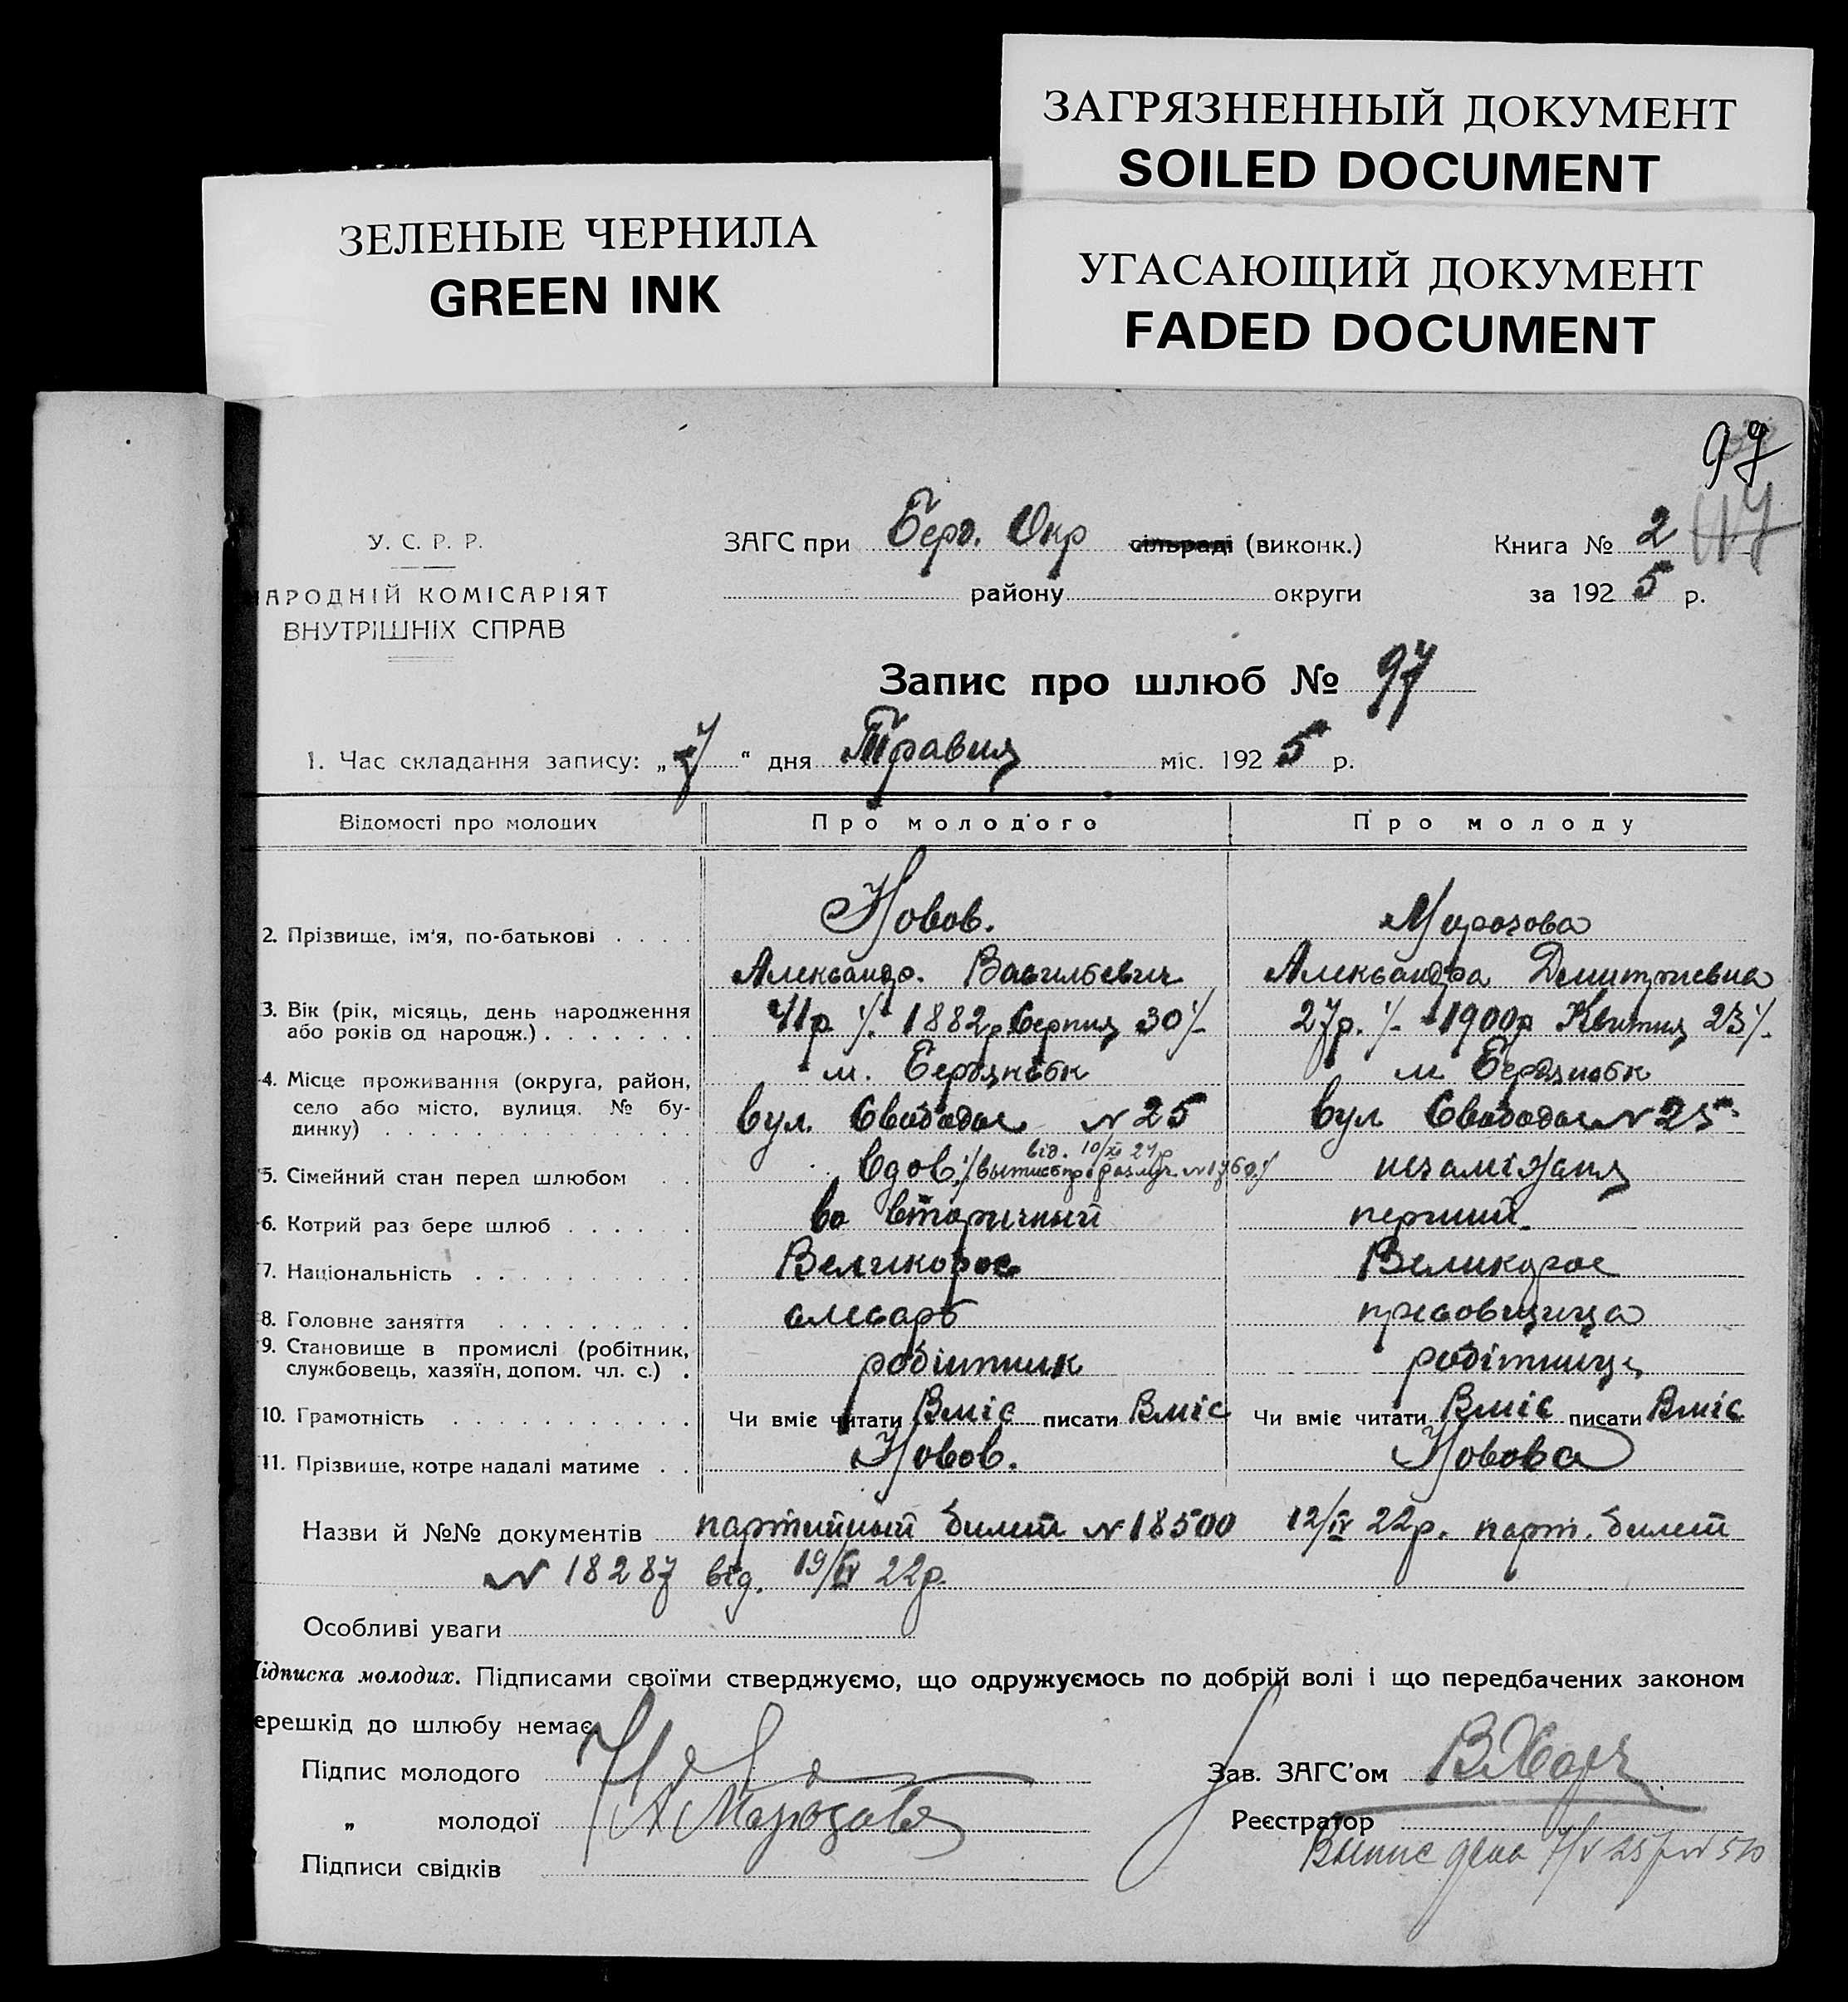 ЗАГРЯЗНЕННЫЙ ДОКУМЕНТ
SOILED DOCUMENT
ЗЕЛЕНЫЕ ЧЕРНИЛА
GREEN INK
УГАСАЮЩИЙ ДОКУМЕНТ
FADED DOCUMENT
97
117
У. С. Р. Р.
АРОДНІЙ КОМІСАРІЯТ
ВНУТРІШНІХ СПРАВ
ЗАГС при Берд. Окр сільраді (виконк.)
району округи
Книга № 2
за 1925 р.
Запис про шлюб № 97
1. Час складання запису: „7“ дня Травня міс. 1925 р.
Відомості про молодих Про молодого Про молоду
2. Прізвище, ім'я, по-батькові Новов. Морозова
Александр. Васильевич Александра Дмитриевна
3. Вік (рік, місяць, день народження або років од народж.) 41р. /. 1882р Серпня 30 /. 27р. /. 1900р Квітня 23 /.
4. Місце проживання (округа, район, село або місто, вулиця. № будинку) м. Бердянськ м. Бердянськ
вул. Свободы № 25 вул Свободы № 25
5. Сімейний стан перед шлюбом вдов. від. 10/XI 24р № 1760 незаміжня
6. Котрий раз бере шлюб во вторичный перший
7. Національність Великорос Великорос
8. Головне заняття слесарь пресовщица
9. Становище в промислі (робітник, службовець, хазяїн, допом. чл. с.) робітник робітниця
10. Грамотність Чи вміє читати Вміє писати Вміє Чи вміє читати Вміє писати Вміє
11. Прізвище, котре надалі матиме Новов. Новова
Назви й №№ документів партийный билет № 18500 12/IV 22р. парт. билет
№ 18287 від. 19/IV 22р.
Особливі уваги
ідписка молодих. Підписами своїми стверджуємо, що одружуємось по добрій волі і що передбачених законом
ерешкід до шлюбу немає.
Підпис молодого Зав. ЗАГС'ом
„ молодої А Морозова Реєстратор
Підписи свідків Выпис дана 7/V 25р № 510